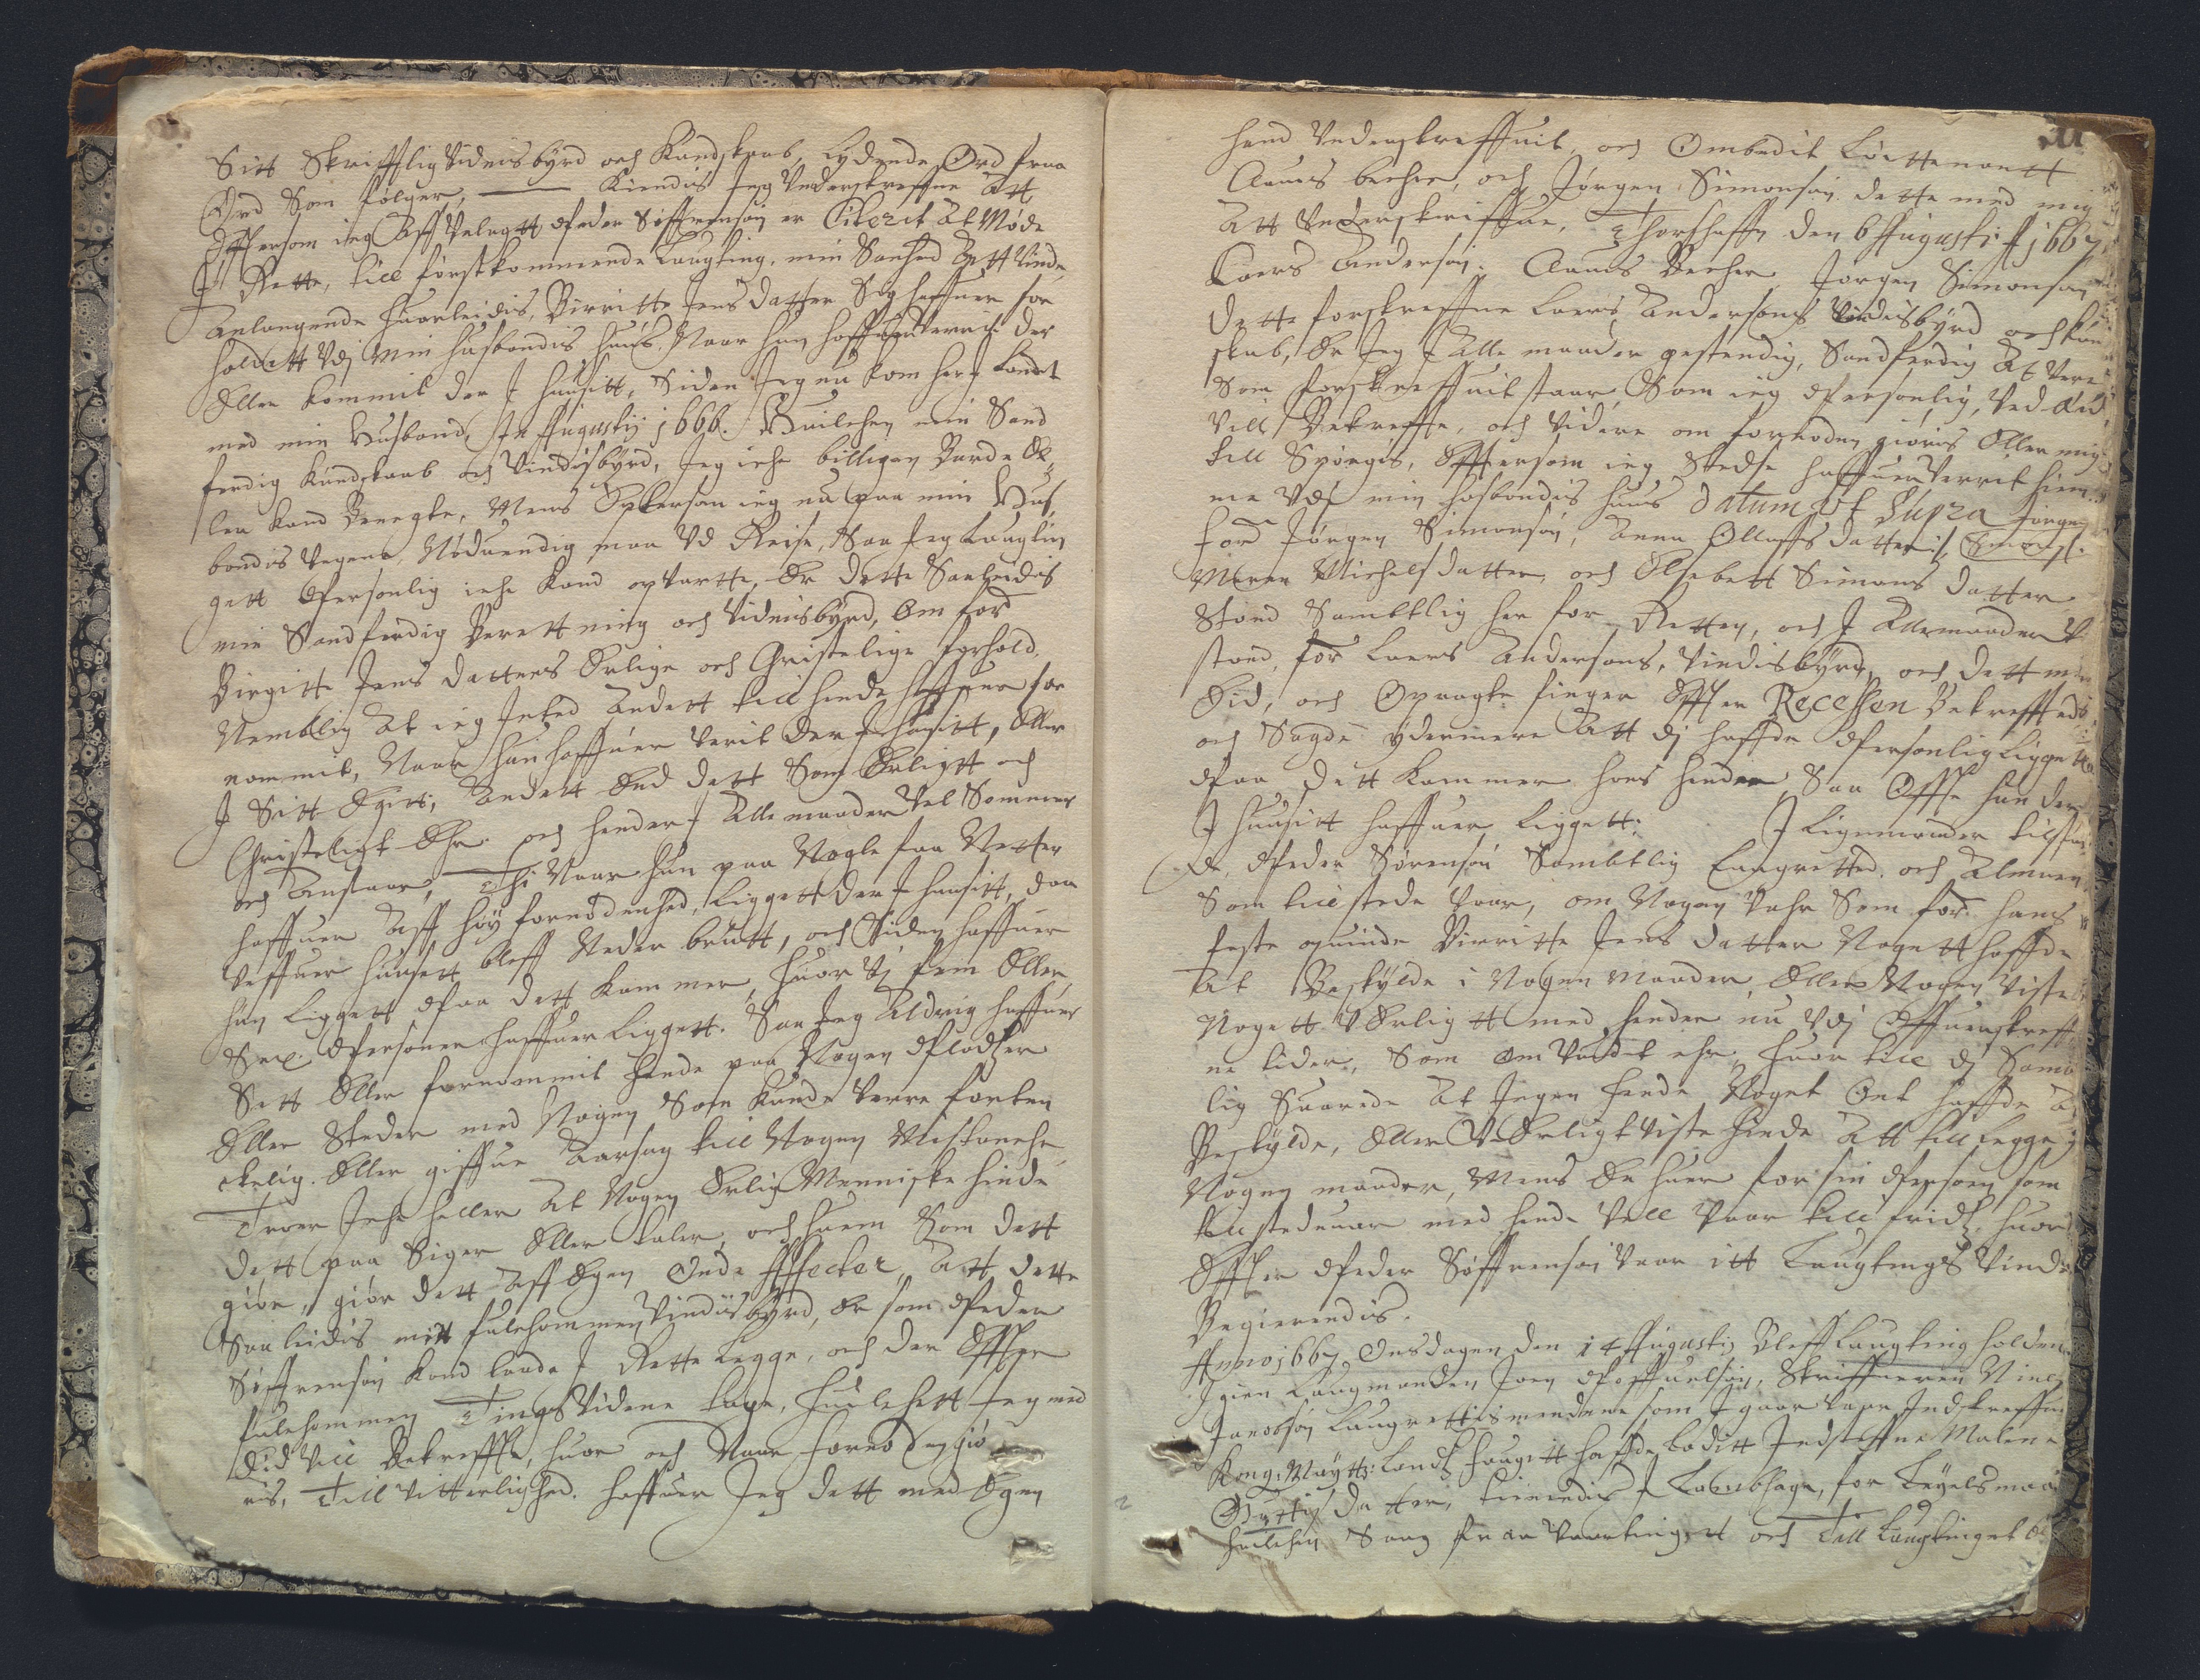 Sitt Skrifftlig Vidnisbÿrd och Kundskaab, Lydende Ord fraa
Ord Som følger, Kiendis Jeg Underskreffne Att
Effersom ieg Aff Velagtt Peder Søffrensøn er Citerit At Møde
J Rette, till førstkommende Laugting, min Sanhed Att Vinde
Anlangende huorleidis, Birritte Jens datter Sig haffuer for
holditt Udj Min husbondis huus. Naar hun haffuer Verrit der
Eller kommit der J huusitt, Siden Jeg nu kom her J Landet
med min Husbond, Jn Augustij 1666. Huilchen min Sand
ferdig Kundskaab och Vindisbÿrd, Jeg iche billigen Burde El
ler kand Benegte, Mens Epterson ieg nu paa min Hus
bondis Vegene, Nøduendig maa Vd Reise, Saa Jeg Laugtin
gett Personlig iche kand opVartte, Er dette Saaleidis
min Sandferdig Berettning och Vidnisbÿrd, Om for:
Birgitte Jens datters Erlige och Christelige forhold,
Nemblig At ieg Jnted Andett till hende haffuer for
nommit, Naar hun haffuer Verit der J husitt, Eller
J Sitt Egitt, Andett End dett Som Erligtt och
Christeligt Ehr och hender J Alle maader Vel Sømmer
och Anstaar, Thi Naar hun paa Nogle faa Netter
haffuer Aff høÿ fornødenhed, Liggett der J huusitt, daa
Veffuer huusett bleff Neder brutt, och Siden haffuer
hun Liggett Paa dett Kammer, huor Vj fem Eller
Sex Personer haffuer Liggett. Saa Jeg Aldrig haffuer
Sett Eller fornommit hende paa Nogen Pladtzer
Eller Steder med Nogen Som kunde Verre forten
ckelig. Eller giffue Aarsag till Nogen Mistanche,
Troer Jche heller At Nogen Erlig Menniske hinde
dett paa Siger Eller taler, och huem Som dett
giør, giør dett Aff Egen Onde Affecter, Att dette
Saaleidis mitt fulkommen Vindisbÿrd, Er som Peder
Søffrensøn kand lade J Rette Legge, och der Effter
fulkommen Tings Vidne tage, huilchett Jeg med
Eid Vill Bekreffte, huor och Naar fornøden giø
ris, Till Vitterlighed. haffuer Jeg dett med Egen
hand Underskreffuit, och Ombedit Løittenantt
Claus becher, och Jørgen Simonsøn dette med mig
Att Underskriffue, Thorshaffn den 6 Augusti A 1667
Laers Andersøn. Claus Becher Jørgen Simonsøn
Dette forskreffne Laers Andersøns Vindisbÿrd och kun
skab, Er Jeg J Alle maader gestendig, Sandferdig At Vere
Som forskreffuit staar, Som ieg Personlig, Ved Eid
Vill Bekreffte, och Videre om fornøden giøris Eller mig
till Spørgis, Effersom ieg Stedse haffuer Verrit hiem
me Udj min husbondis huus Datum ut Supra Jørgen
for Jørgen Simonsøn, Anna Ollaffs datter, Simons:
Maren Michelsdatter, och Elsebett Simons datter
Stoed Samblig her for Retten, och J Allemaader V
stoed, for Laers Andersøns, Vindisbÿrd, och dett med
Eid, och Opragte finger Effter Recessen Bekrefftede
och Sagde ydermere Att dj haffde Personlig Liggett
Paa dett Kammer hoes hinder Saa Offte hun der
J huusitt haffuer Liggett; J Ligemaader tilspur
de, Peder Sørensøn Samblig Laugretted och Almuen
Som tilstede Vaar, om Nogen Vahr Som for: hans
feste quinde Birritte Jens datter Nogett haffde
At Beskÿlde i Nogen Maader, Eller Nogen Viste
Nogett VErligtt med hender nu Vdj Offuenskreff
ne tider, Som om Vandet ehr, huor till dj Samb
lig Suarede At Jngen hende Noget Ont haffde A
Beskÿlde, Eller VErligt Viste hinde Att till Legge J
Nogen maader, Mens En huer for sin Person som
tilstede Vaar med hende Vell Vaar till fridtz. huor
Effter Peder Søffrensøn Vaar itt Laugtings Vinde
Begierendis.
Anno 1667 Onsdagen den 14 Augustij Bleff Laugting holden
Jgien Laugmanden Joen Poffuelsøn, Skriffueren Niels
Jacobsøn Laugrettismendene som J gaar Vaar Jndskreffn
Kong: Maÿtz: Landtfougitt hafde Ladett Jndsteffne Malene
Guttis datter, tienendis J Lambhage, for Leÿelsmaal
huilchen Saag fraa Vaartingett och Till Laugtinget Er